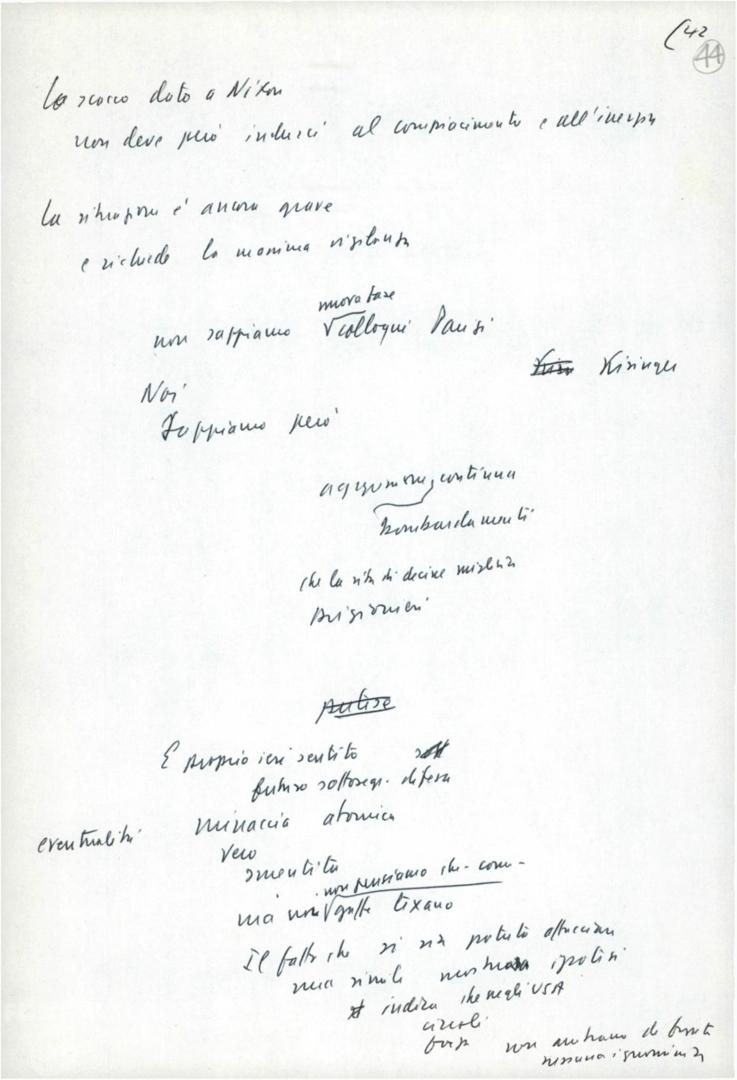 (42
44
Lo scacco dato a Nixon
non deve però indurci al compiacimento e all'inerzia
La situazione è ancora grave
e richiede la massima vigilanza
nuova fase
non sappiamo colloqui Parigi
Kissinger
Noi
Sappiamo però
aggressione, continua
bombardamenti
che la vita di decine migliaia
prigionieri
E proprio ieri sentito
futuro sottosegr. difesa
eventualità minaccia atomica
Vero
smentita
non pensiamo che
ma non gaffe texano
Il fatto che si sia potuto affacciare
una simile mostruosa ipotesi
indica che negli USA
circoli
forze non arretrano di fronte
nessuna ignominia